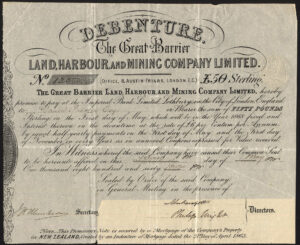 DEBENTURE.
The Great Barrier
LAND, HARBOUR, AND MINING COMPANY LIMITED.
No
OFFICE, 8, AUSTIN FRIARS, LONDON E.C.
£50 Sterling.
THE GREAT BARRIER LAND, HARBOUR AND MINING COMPANY LIMITED, hereby
promise to pay at the Imperial Bank Limited Lothbury, in the City of London England
to or Bearer the sum of FIFTY POUNDS
Sterling on the First day of May which will be in the Year 1868 fixed and
Interest thereon in the meantime at the rate of per Cent per Annum
by equal half yearly payments on the First day of May and the First day
of November, in every Year as on annexed Coupons expressed for Value received
In Witness whereof the said Company have caused their Common Seal
to be hereunto affixed on this day of
One thousand eight hundred and sixty
Sealed by Order of the said Company
in General Meeting in the presence of
Secretary
Philip Wright
Directors.
Note, This Debenture Note is secured by a Mortgage of the Company's Property
in NEW ZEALAND, created by an Indenture of Mortgage dated the 29 day of April 1863.